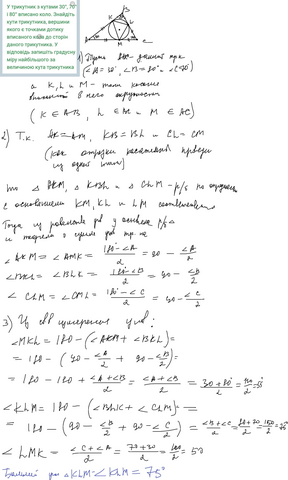 У трикутник з кутами 30°, 70°
і 80° вписано коло. Знайдіть
кути трикутника, вершини
якого є точками дотику
вписаного кола до сторін
даного трикутника. У
відповідь запишіть градусну
міру найбільшого за
величиною кута трикутника.
B
K
L
A
M
C
1) Пусть ABC - данный
(∠A=30°, ∠B=80°, ∠C=70°)
а K, L и M - точки касания
вписанной в него окружности
(K ∈ AB, L ∈ BC и M ∈ AC)
2) Т.к. AK=AM, KB=BL и CL=CM
(как отрезки касательной проведён
из одной точки)
то △ AKM, △ KBL и △ CLM - р/б
с основаниями KM, KL и LM соответственно
Тогда из равенства у основания р/б △
и теореме о сумме
∠AKM = ∠AMK = 180°-∠A / 2 = 90 - ∠A/2
∠BKL = ∠BLK = 180-∠B / 2 = 90 - ∠B/2
∠CLM = ∠CML = 180°-∠C / 2 = 90 - ∠C/2
3) Из измерения углов:
∠MKL = 180 - (∠AKM + ∠BKL) =
= 180 - (90 - ∠A/2 + 90 - ∠B/2) =
= 180 - 180 + ∠A+∠B / 2 = ∠A+∠B / 2 = 30+80 / 2 = 55°
∠KLM = 180 - (∠BLK + ∠CLM) =
= 180 - (90 - ∠B/2 + 90 - ∠C/2) = ∠B+∠C / 2 = 80+70 / 2 = 150/2 = 75°
∠LMK = ∠C+∠A / 2 = 70+30 / 2 = 100/2 = 50
∠KLM = 75°